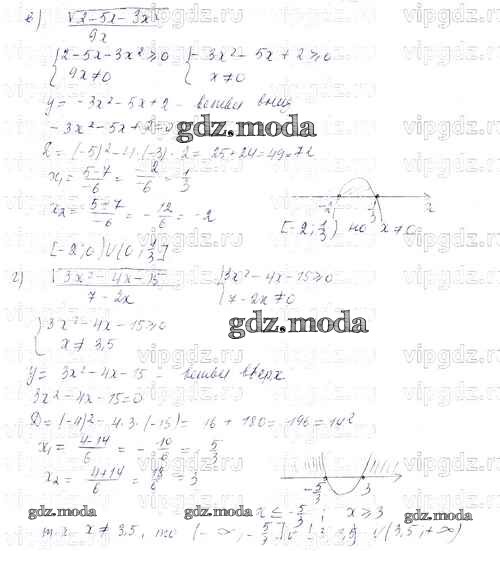 в) √2-5x-3x² / 9x
{ 2-5x-3x² ≥ 0 { -3x²-5x+2 ≥ 0
9x ≠ 0 x ≠ 0
y = -3x²-5x+2 - ветви вниз
-3x²-5x+2=0
gdz.moda
D = (-5)²-4·(-3)·2 = 25+24=49=7²
x₁ = 5-7/-6 = -2/-6 = 1/3
x₂ = 5+7/-6 = -12/6 = -2
-2 1/3 x
[-2; 1/3) но x≠0
[-2;0)∪(0; 1/3]
г) √3x²-4x-15 / 7-2x { 3x²-4x-15 ≥ 0
7-2x ≠ 0
{ 3x²-4x-15 ≥ 0
x ≠ 3,5
gdz.moda
y = 3x²-4x-15 - ветви вверх
3x²-4x-15=0
D = (-4)²-4·3·(-15) = 16+180=196=14²
x₁ = 4-14/6 = -10/6 = 5/3
x₂ = 4+14/6 = 18/6 = 3
-5/3 3
x ≤ -5/3 ; x ≥ 3
gdz.moda gdz.moda gdz.moda
т.к. x ≠ 3,5, то (-∞; -5/3]∪[3; 3,5)∪(3,5; +∞)
vipgdz.ru